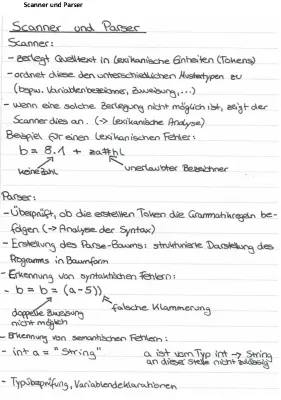 Scanner und Parser
Scanner und Parser
Scanner:
- zerlegt Quelltext in Lexikanische Einheiten (Tokens)
- ordnet diese den unterschiedlichen Mustertypen zu
(bspw. Variablenbezeichner, Zuweisung,...)
- wenn eine solche Zerlegung nicht möglich ist, zeigt der
Scanner dies an. (-> Lexikanische Analyse)
Beispiel für einen Lexikanischen Fehler:
b = 8.1 + za#hl
keine Zahl unerlaubter Bezeichner
Parser:
- Überprüft, ob die erstellten Token die Grammatikregeln be-
folgen (-> Analyse der Syntax)
- Erstellung des Parse-Baums: strukturierte Darstellung des
Programms in Baumform
- Erkennung von syntaktischen Fehlern:
- b = b = (a-5))
doppelte Zuweisung falsche Klammerung
nicht möglich
- Erkennung von semantischen Fehlern:
- int a = "String" a ist vom Typ int -> String
an dieser Stelle nicht zulässig
- Typüberprüfung, Variablendeklarationen